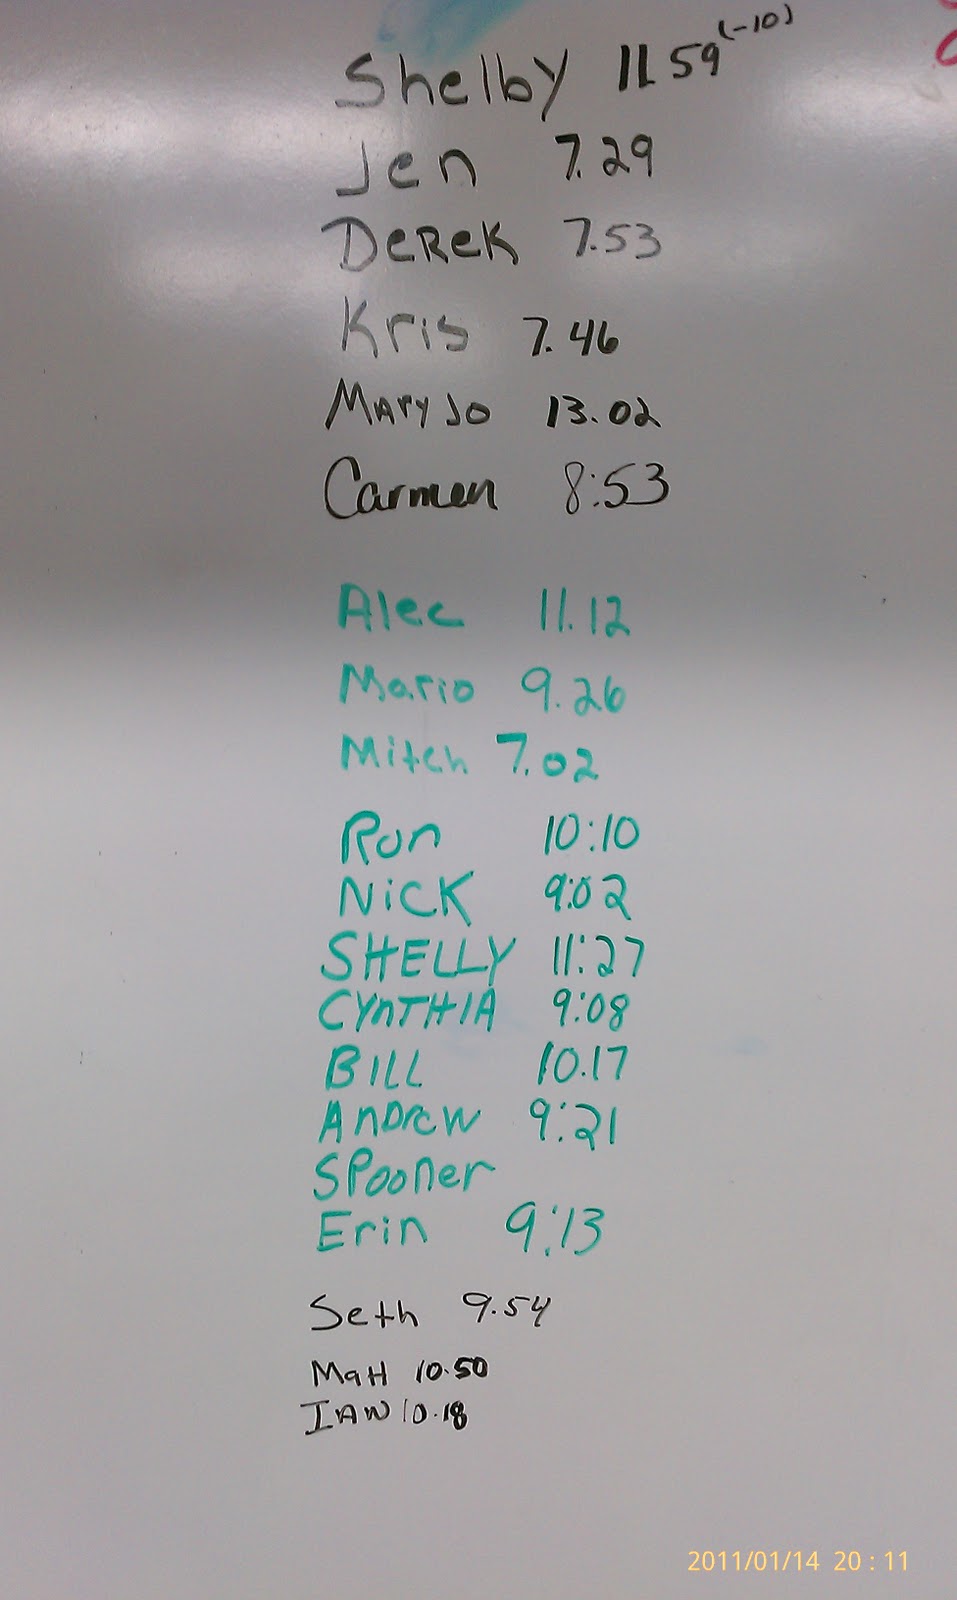 Shelby 11.59 (-10)
Jen 7.29
Derek 7.53
Kris 7.46
Mary Jo 13.02
Carmen 8:53
Alec 11.12
Mario 9.26
Mitch 7.02
Ron 10:10
Nick 9:02
SHELLY 11:27
CYnTHIA 9:08
BILL 10.17
AnDrew 9:21
SPooner
Erin 9:13
Seth 9.54
Matt 10.50
IAN 10.18
2011/01/14 20:11